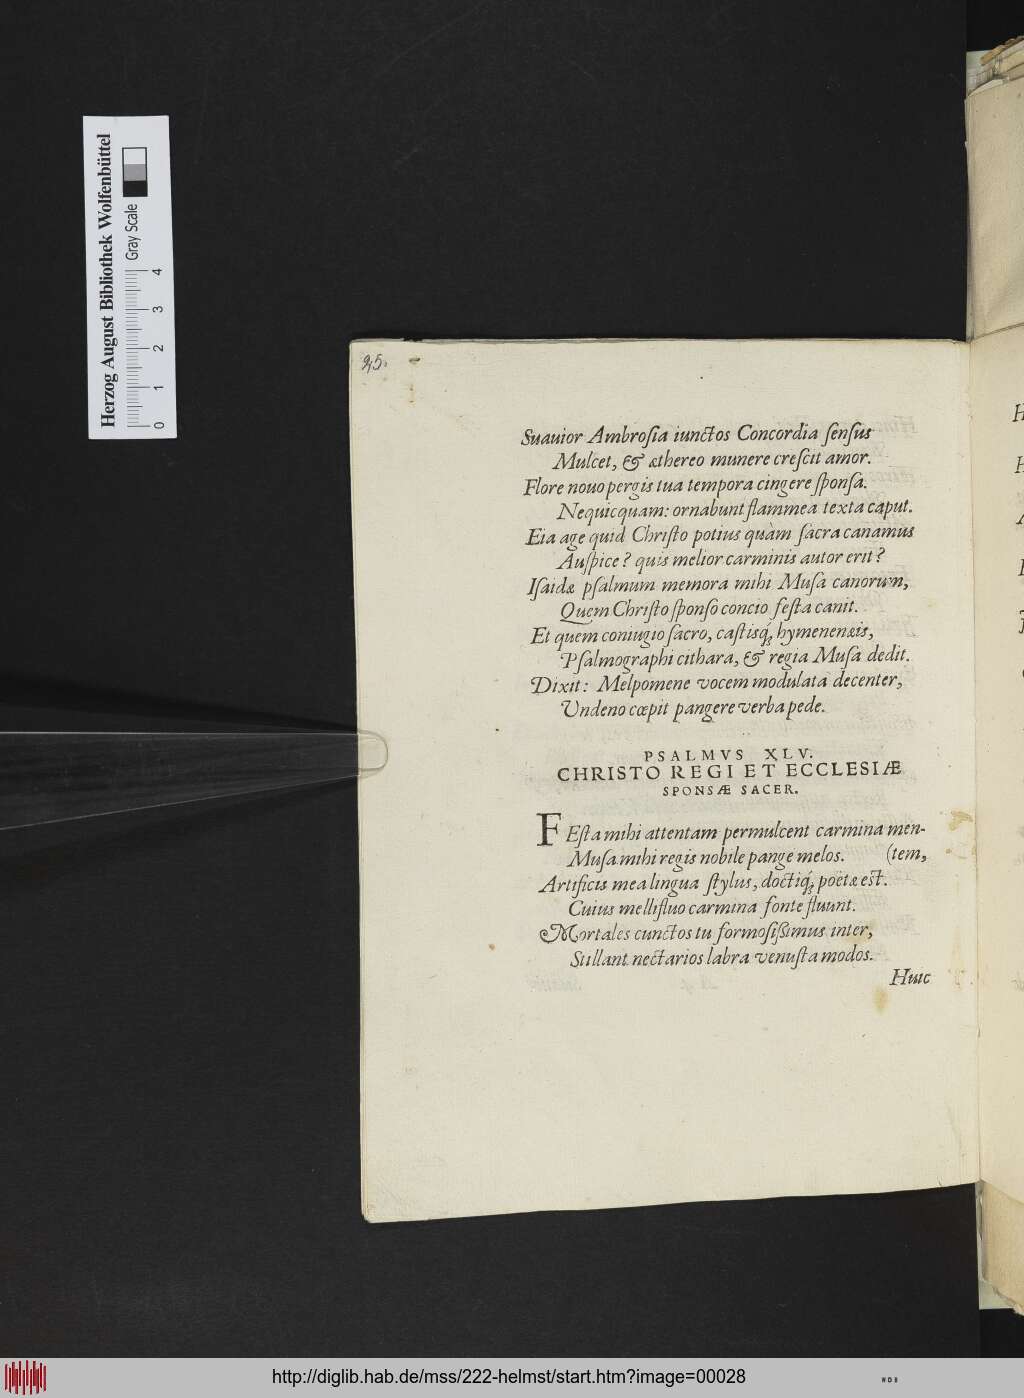 Herzog August Bibliothek Wolfenbüttel
Gray Scale
0 1 2 3 4
25.
Suauior Ambrosia iunctos Concordia sensus
Mulcet, & æthereo munere crescit amor.
Flore nouo pergis tua tempora cingere sponsa.
Nequicquam: ornabunt flammea texta caput.
Eia age quid Christo potius quàm sacra canamus
Auspice? quis melior carminis autor erit?
Isaidæ psalmum memora mihi Musa canorum,
Quem Christo sponso concio festa canit.
Et quem coniugio sacro, castisq́; hymenenæis,
Psalmographi cithara, & regia Musa dedit.
Dixit: Melpomene vocem modulata decenter,
Undeno cœpit pangere verba pede.
PSALMVS XLV.
CHRISTO REGI ET ECCLESIÆ
SPONSÆ SACER.
FEsta mihi attentam permulcent carmina men-
Musa mihi regis nobile pange melos. (tem,
Artificis mea lingua stylus, doctiq́; poëtæ est.
Cuius mellifluo carmina fonte fluunt.
Mortales cunctos tu formosissimus inter,
Stillant nectarios labra venusta modos.
Huic
http://diglib.hab.de/mss/222-helmst/start.htm?image=00028